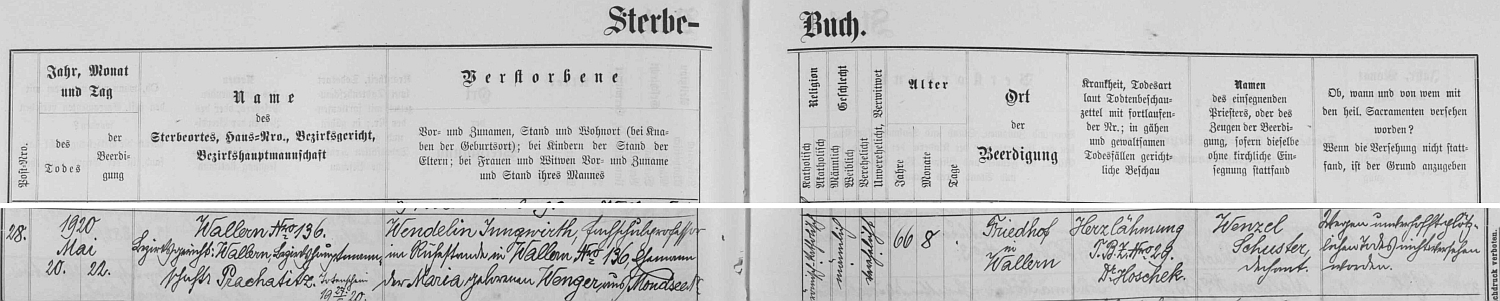 Sterbe-
Buch.
Post-Nro.
Jahr, Monat
und Tag
des
Todes
der
Beerdi-
gung
Name
des
Sterbeortes, Haus-Nro., Bezirksgericht,
Bezirkshauptmannschaft
Verstorbene
Vor- und Zunamen, Stand und Wohnort (bei Kna-
ben der Geburtsort); bei Kindern der Stand der
Eltern; bei Frauen und Witwen Vor- und Zuname
und Stand ihres Mannes
Religion
Katholisch
Akatholisch
Geschlecht
Männlich
Weiblich
Verehelicht
Unverehelicht, Verwitwet
Alter
Jahre
Monate
Tage
Ort
der
Beerdigung
Krankheit, Todesart
laut Todtenbeschau-
zettel mit fortlaufen-
der Nr.; in gähen
und gewaltsamen
Todesfällen gericht-
liche Beschau
Namen
des einsegnenden
Priesters, oder des
Zeugen der Beerdi-
gung, sofern dieselbe
ohne kirchliche Ein-
segnung stattfand
Ob, wann und von wem mit
den heil. Sacramenten versehen
worden?
Wenn die Versehung nicht statt-
fand, ist der Grund anzugeben
28.
1920
Mai
20. 22.
Wallern Nro 136.
Bezirksgericht: Wallern, Bezirkshauptmann-
schaft: Prachatitz.
Wendelin Jungwirth, Fachschulprofessor
im Ruhestande in Wallern Nro 136, Ehemann
der Maria geborenen Wenger aus Mondsee
katholisch
männlich
verehelicht
66 8 .
Friedhof
in
Wallern
Herzlähmung
T.B.Z. Nro 29.
Dr. Hoschek.
Wenzel
Schuster,
Dechant.
Wegen unverhofft plötz-
lichen Todes nicht versehen
worden.